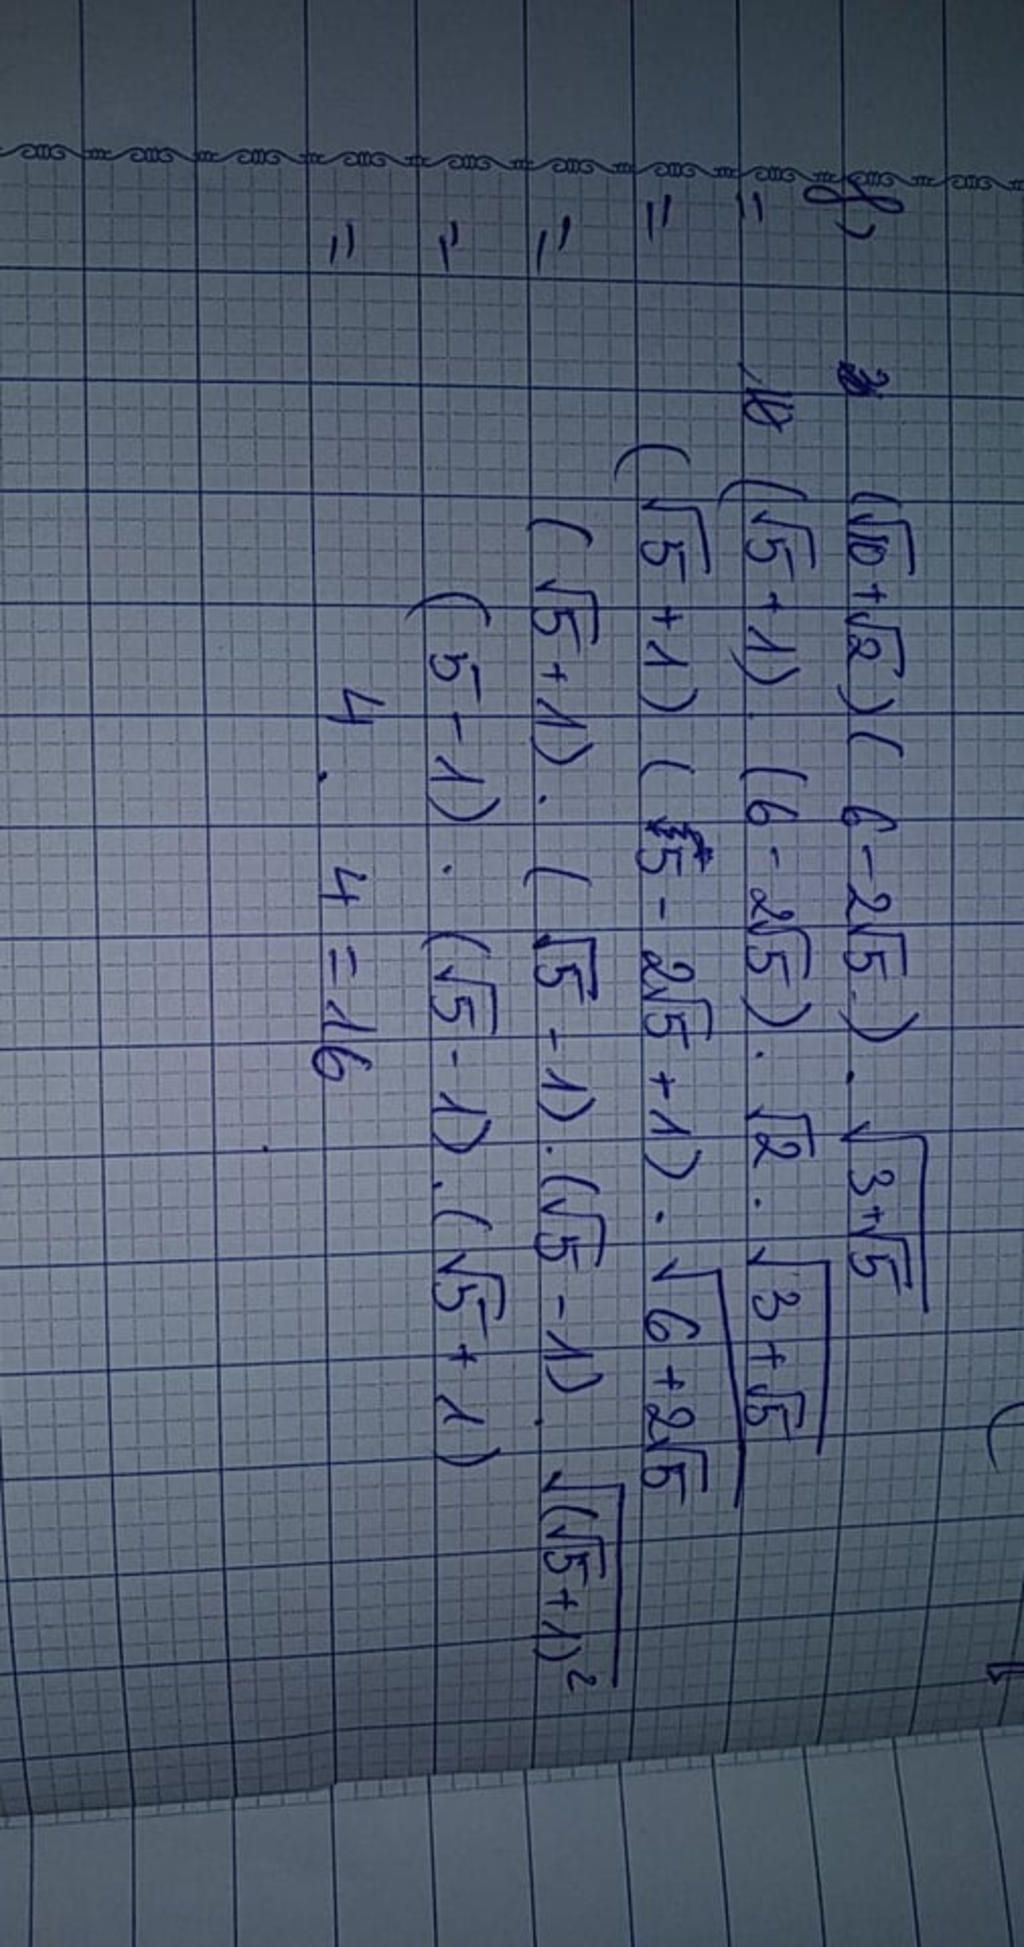 f) (√10+√2)( 6-2√5 ) . √(3+√5)
= (√5+1). (6-2√5) . √2 . √(3+√5)
= (√5+1) ( 5 - 2√5 +1) . √(6+2√5)
= (√5+1) . ( √5 -1).(√5-1) . √((√5+1)²)
= (5-1) . (√5-1).(√5+1)
= 4 . 4 = 16